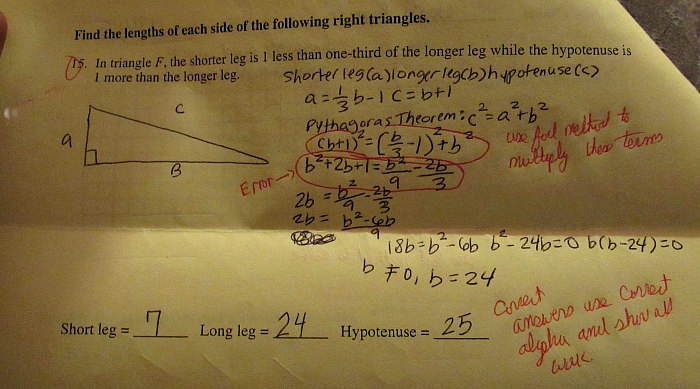 Find the lengths of each side of the following right triangles.
15. In triangle F, the shorter leg is 1 less than one-third of the longer leg while the hypotenuse is
1 more than the longer leg.
shorter leg(a) longer leg(b) hypotenuse(c)
a = 1/3 b - 1 c = b+1
Pythagoras Theorem: c² = a² + b²
(b+1)² = (b/3 - 1)² + b²
use foil method to
multiply these terms
Error →
b² + 2b + 1 = b²/9 - 2b/3
2b = b²/9 - 2b/3
2b = b² - 6b / 9
18b = b² - 6b b² - 24b = 0 b(b-24) = 0
b ≠ 0, b = 24
a
c
B
Short leg = 7 Long leg = 24 Hypotenuse = 25
Correct
answers use correct
algebra and show all
work.